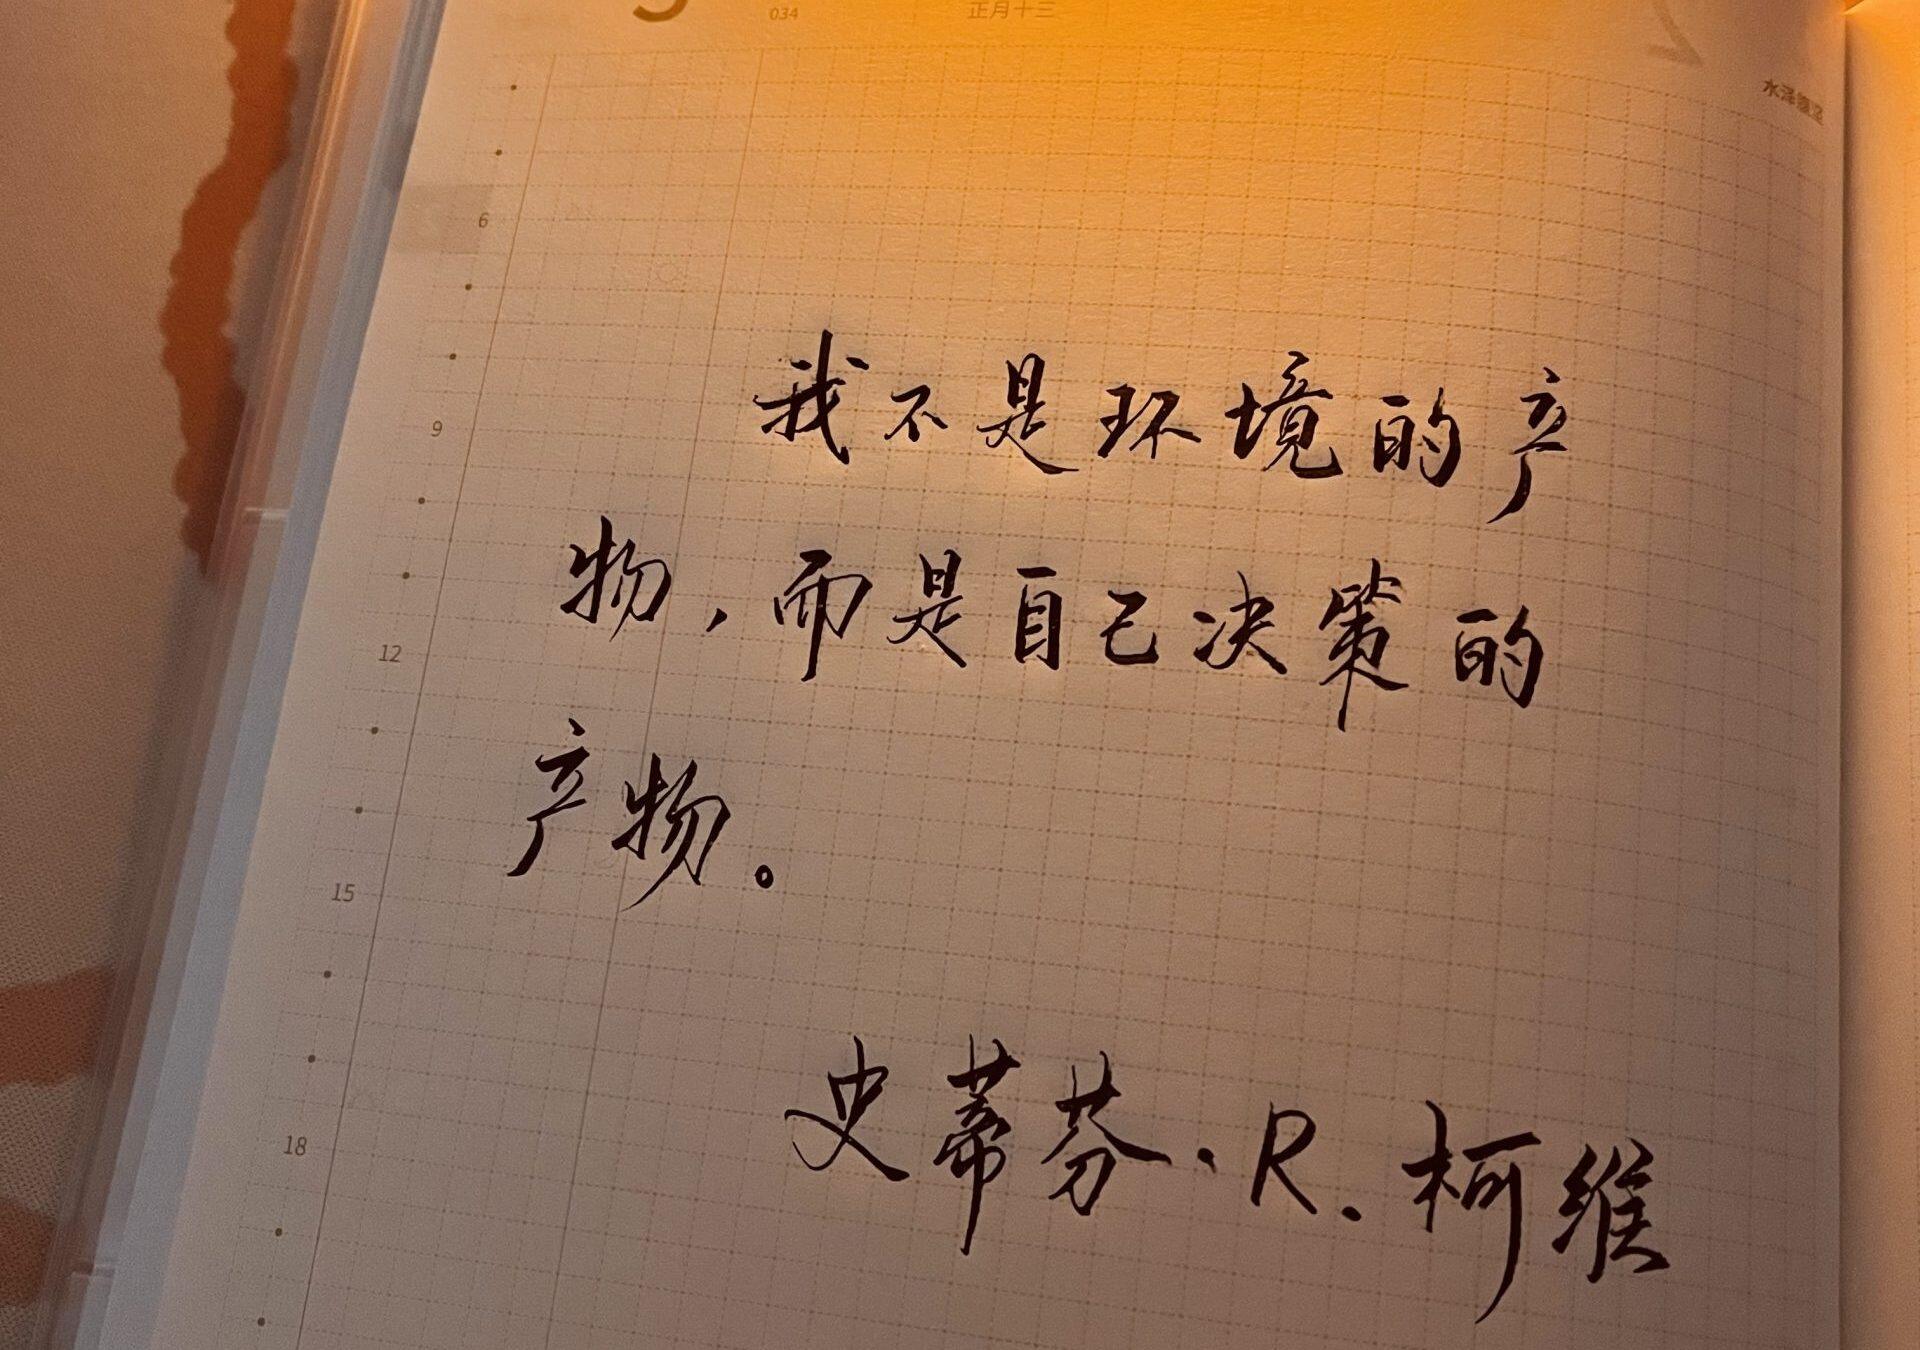 034
正月十三
6
我不是环境的产
9
物，而是自己决策的
12
产物。
15
史蒂芬·R.柯维
18